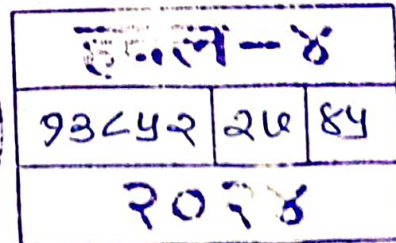 हवल-४
१३८५२ २७ ४५
२०२४